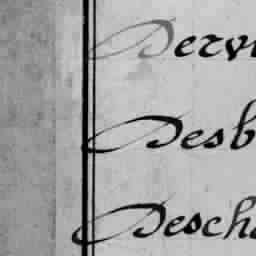 Derv
Desb
Desch